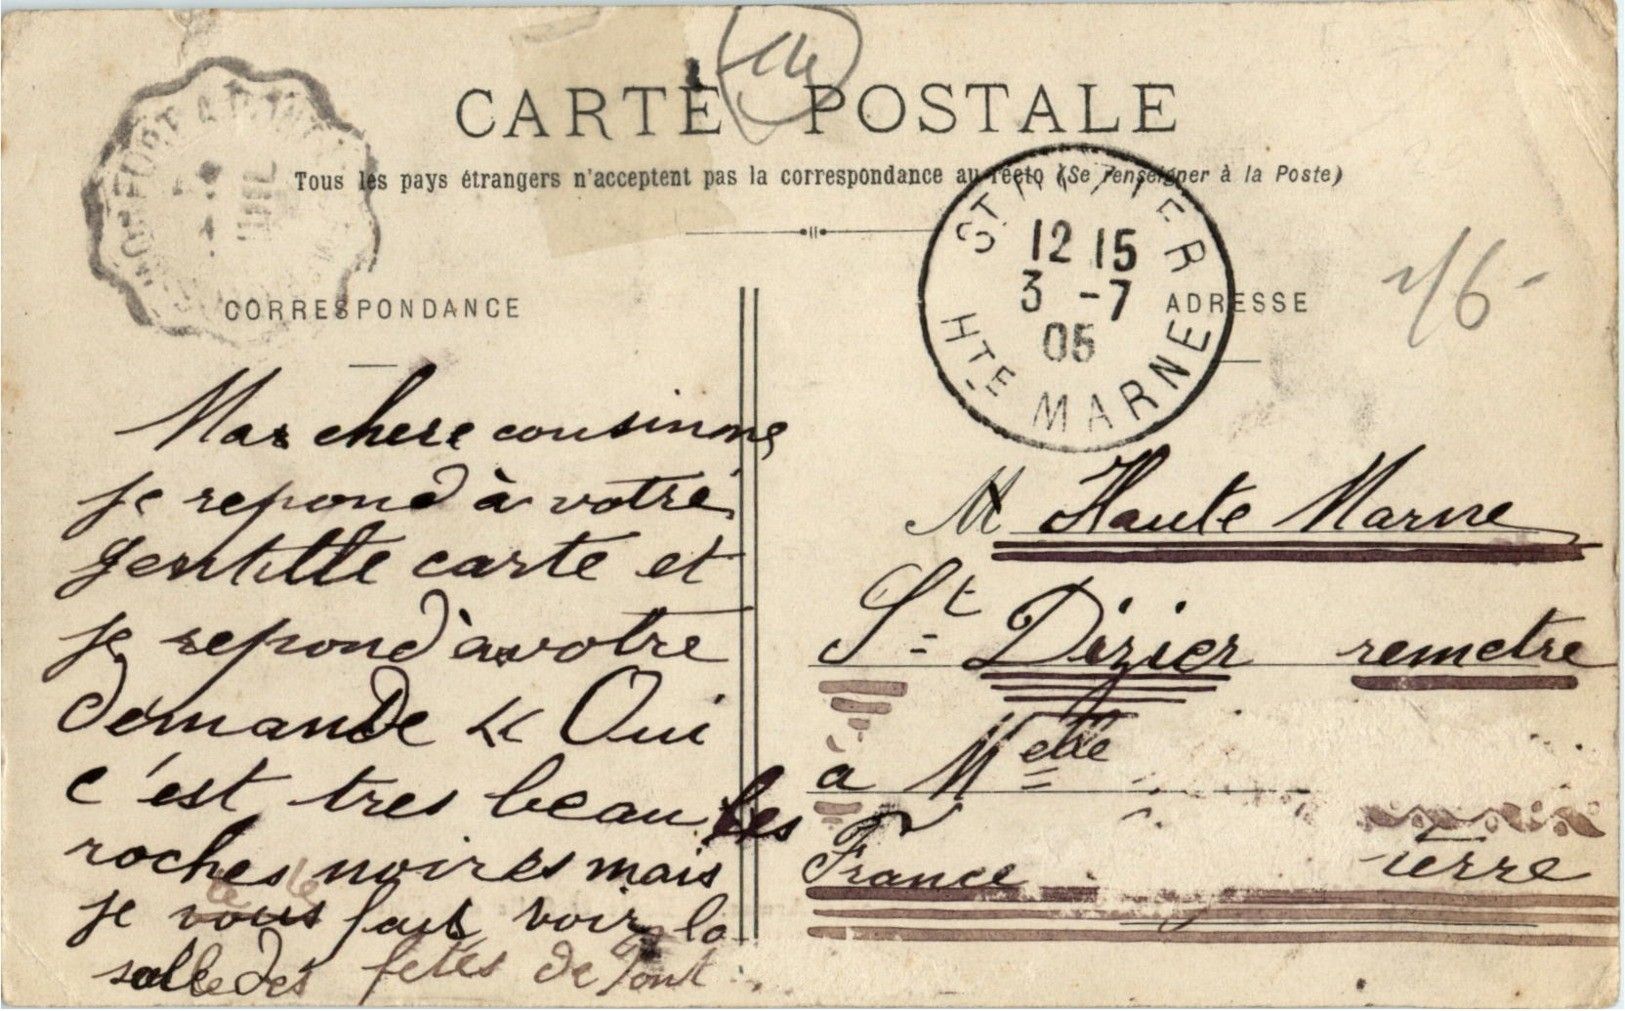 CARTE POSTALE
Tous les pays étrangers n'acceptent pas la correspondance au recto (Se renseigner à la Poste)
CORRESPONDANCE
Mas chere cousinne
je repond à votre
gentille carte et
je repond à votre
demande « Oui
c'est tres beau les
roches noires mais
je vous fais voir la
salle des fetes de Pont
ST DIZIER
12 15
3 -7
05
HTE MARNE
ADRESSE
M Haute Marne
St Dizier remetre
a Melle
France